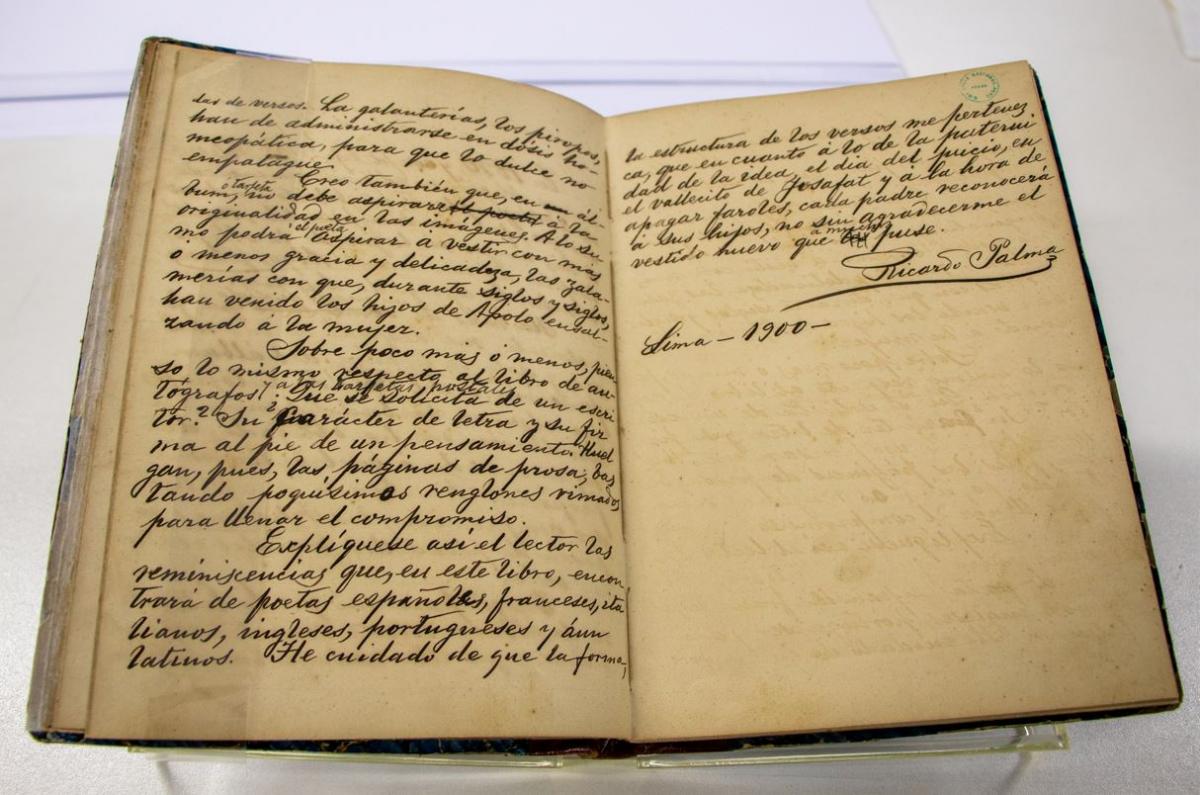 das de versos. La galanterías, los piropos,
han de administrarse en dosis ho-
meopática, para que lo dulce no
empalague.
Creo también que, en un ál-
bum, ó tarjeta, no debe aspirarse el poeta á la
originalidad en las imágenes. A lo su
mo podrá el poeta aspirar a vestir con mas
ó menos gracia y delicadeza, las zala-
merías con que, durante siglos y siglos,
han venido los hijos de Apolo ensal-
zando á la mujer.
Sobre poco mas ó menos, pien
so lo mismo respecto al libro de au-
tógrafos y a las tarjetas postales. ¿Que se solicita de un escri
tor? Su carácter de letra y su fir
ma al pie de un pensamiento. Huel
gan, pues, las páginas de prosa, bas
tando poquísimos renglones rimados
para llenar el compromiso.
Explíquese así el lector las
reminiscencias que, en este libro, encon
trará de poetas españoles, franceses, ita
lianos, ingleses, portugueses y áun
latinos. He cuidado de que la forma,
la estructura de los versos me pertenez
ca, que en cuanto á lo de la paterni
dad de la idea, el dia del juicio, en
el vallecito de Josafat y a la hora de
apagar faroles, cada padre reconocerá
a sus hijos, no sin agradecerme el
vestido nuevo que a muchos puse.
Ricardo Palma
Lima - 1900 -